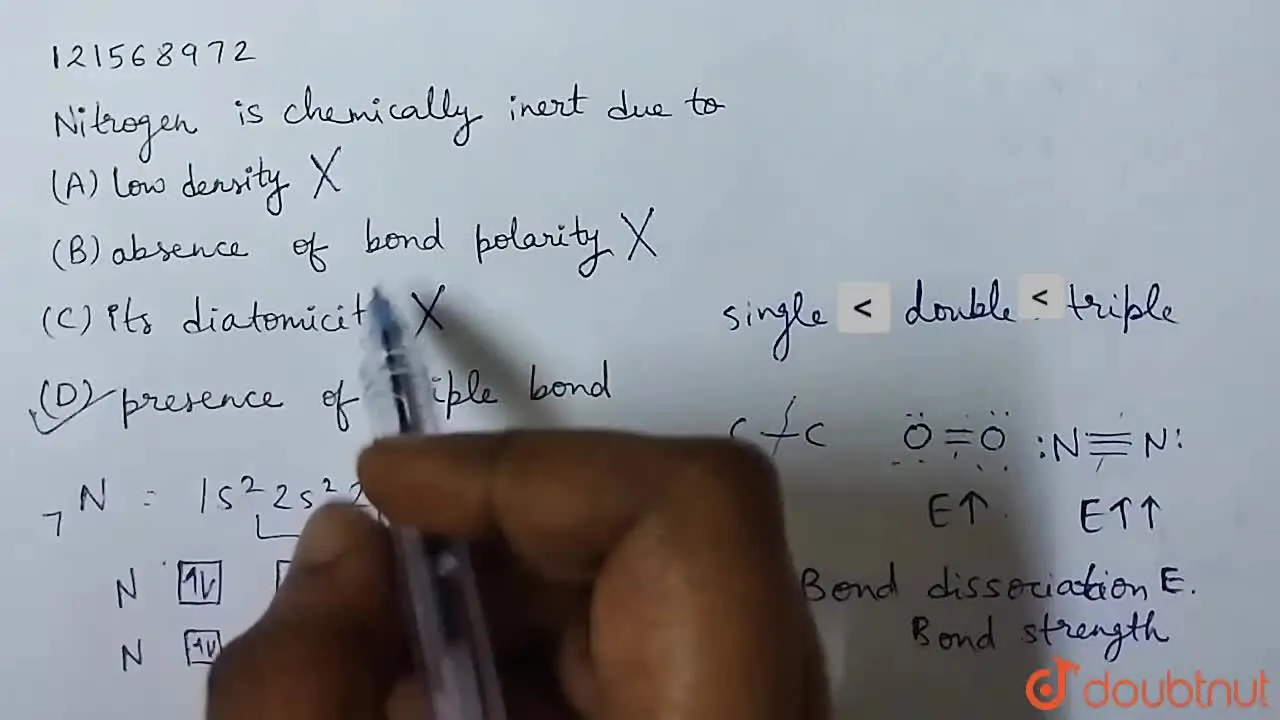 121568972
Nitrogen is chemically inert due to
(A) low density X
(B) absence of bond polarity X
(C) its X
(D) presence of bond
single < double < triple
C C
O=O :N≡N:
E↑ E↑↑
7N = 1s² 2s²
N 1v
N 1v
Bond dissociation E.
Bond strength
doubtnut